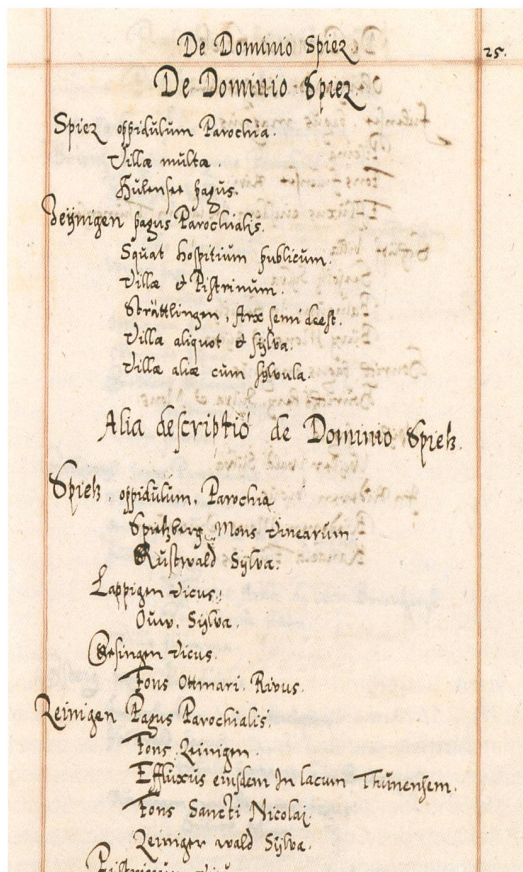 De Dominio Spiez
25.
De Dominio Spiez
Spiez oppidulum Parochia.
Villæ multæ
Hülensee pagus.
Zeÿnigen pagus Parochialis.
Squat hospitium publicum.
Villæ & Pistrinum.
Strättlingen, Arx semi deest.
Villæ aliquot & sylva.
Villæ aliæ cum sylvula.
Alia descriptio de Dominio Spietz.
Spietz, oppidulum, Parochia
Spietzberg Mons vinearum
Rustwald Sylva.
Lappigen vicus.
Ouw. Sylva.
vicus.
Fons Ottmari. Rivus.
Reinigen Pagus Parochialis.
Fons Reinigen.
Effluxus eiusdem In lacum Thunensem.
Fons Sancti Nicolai
Reiniger wald Sylva.